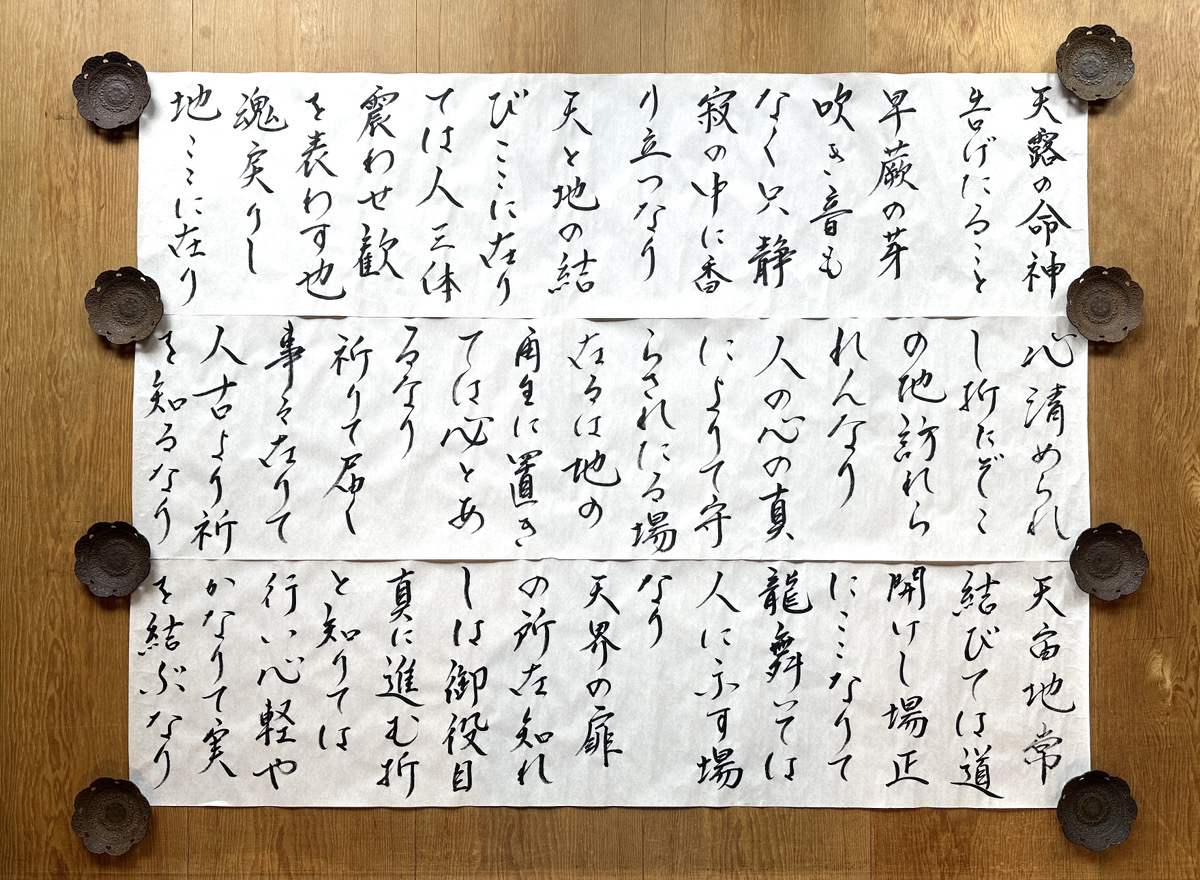 天露の命神
告げたること
早蕨の芽
吹き音も
なく只静
寂の中に番
り立つなり
天と地の結
びここに在り
ては人三体
震わせ歓
を表わす也
魂戻りし
地ここに在り
心清められ
し折にぞこ
の地訪れら
れんなり
人の心の真
によりて守
らされたる場
在るは地の
再生に置き
ては必とあ
るなり
祈りて届く
事々在りて
人古より祈
を知るなり
天宙地常
結びては道
開けし場正
にここなりて
龍舞いては
人に示す場
なり
天界の扉
の所在知れ
しは御役目
真に進む折
と知りては
行い心軽や
かなりて実
を結ぶなり